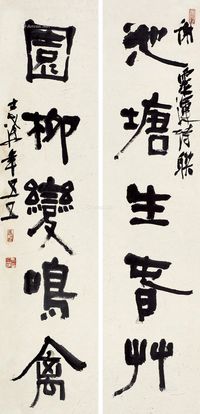 池塘生春艸
謝靈運詩聯
園柳變鳴禽
士澍年五五